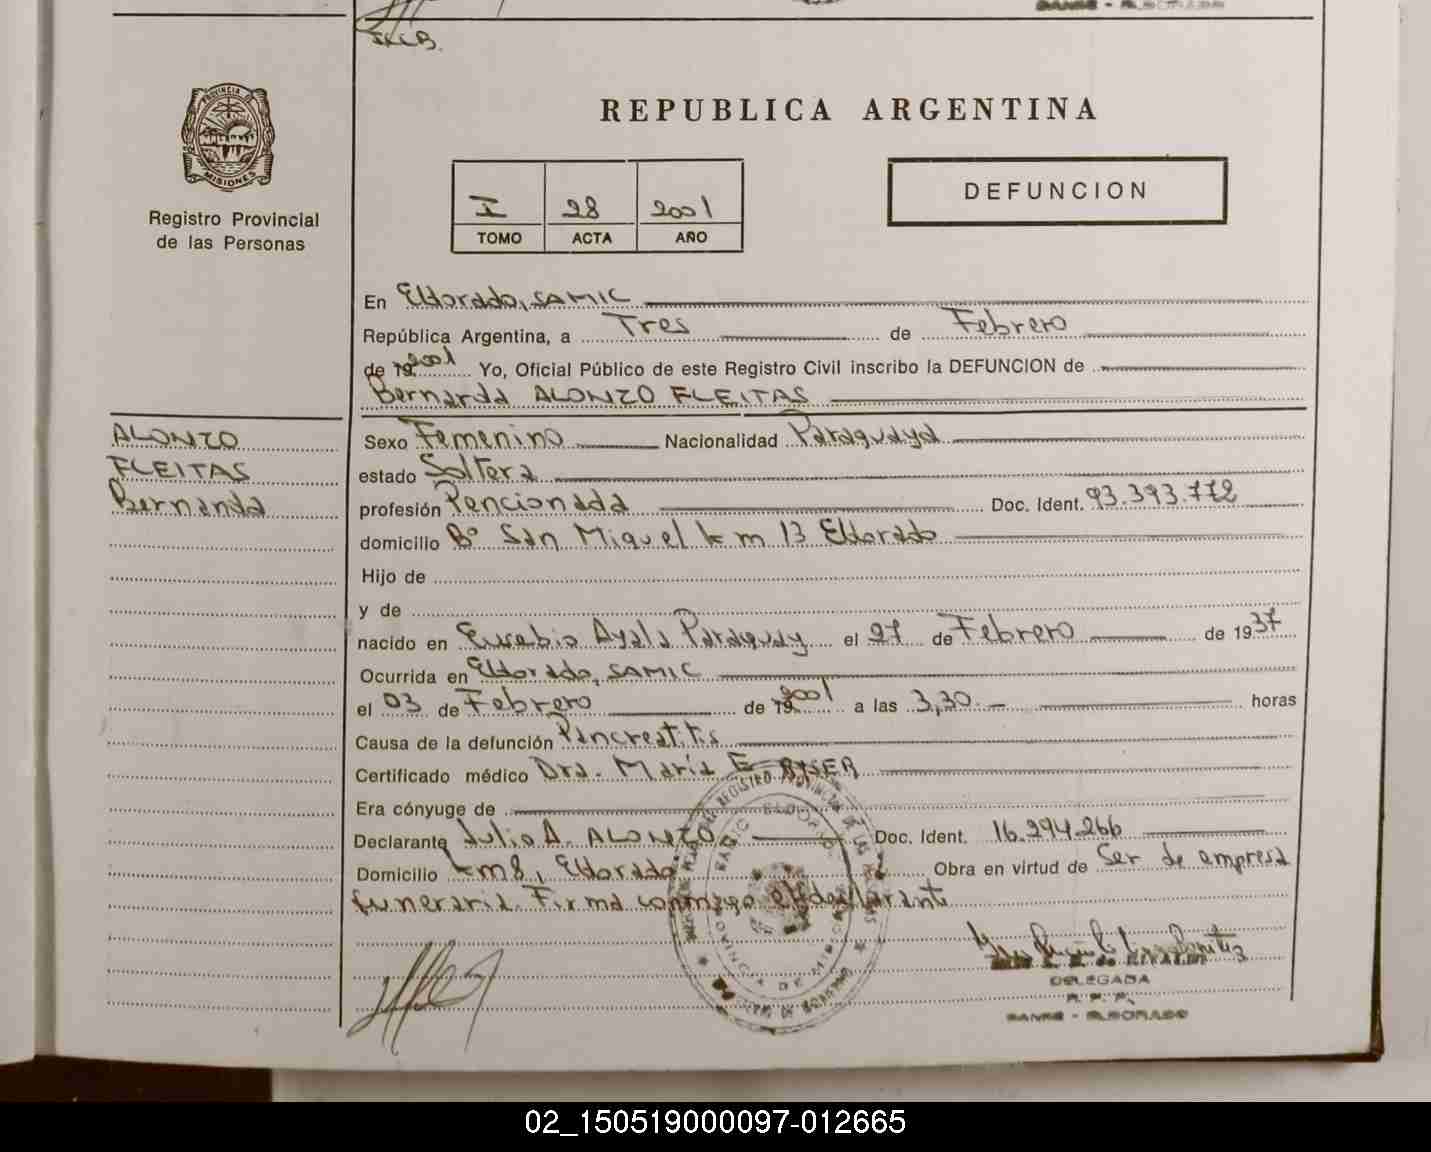 JLLB.
PROVINCIA DE
MISIONES
Registro Provincial
de las Personas
REPUBLICA ARGENTINA
DEFUNCION
I 28 2001
TOMO ACTA AÑO
En Eldorado, SAMIC
República Argentina, a Tres de Febrero
de 19 2001 Yo, Oficial Público de este Registro Civil inscribo la DEFUNCION de
Bernarda ALONZO FLEITAS
ALONZO
FLEITAS
Bernarda
Sexo Femenino Nacionalidad Paraguaya
estado Soltera
profesión Pencionada Doc. Ident. 93.393.772
domicilio B° San Miguel km 13 Eldorado
Hijo de
y de
nacido en Eusebio Ayala Paraguay el 27 de Febrero de 1937
Ocurrida en Eldorado, SAMIC
el 03 de Febrero de 19 2001 a las 3,30 horas
Causa de la defunción Pancreatitis
Certificado médico Dra. Maria E.
Era cónyuge de
Declarante Julio A. ALONZO Doc. Ident. 16.294.266
Domicilio km 8, Eldorado Obra en virtud de Ser de empresa
funeraria. Firma conmigo el declarante
DELEGADA
R. P. P.
SAMIC - ELDORADO
02_150519000097-012665